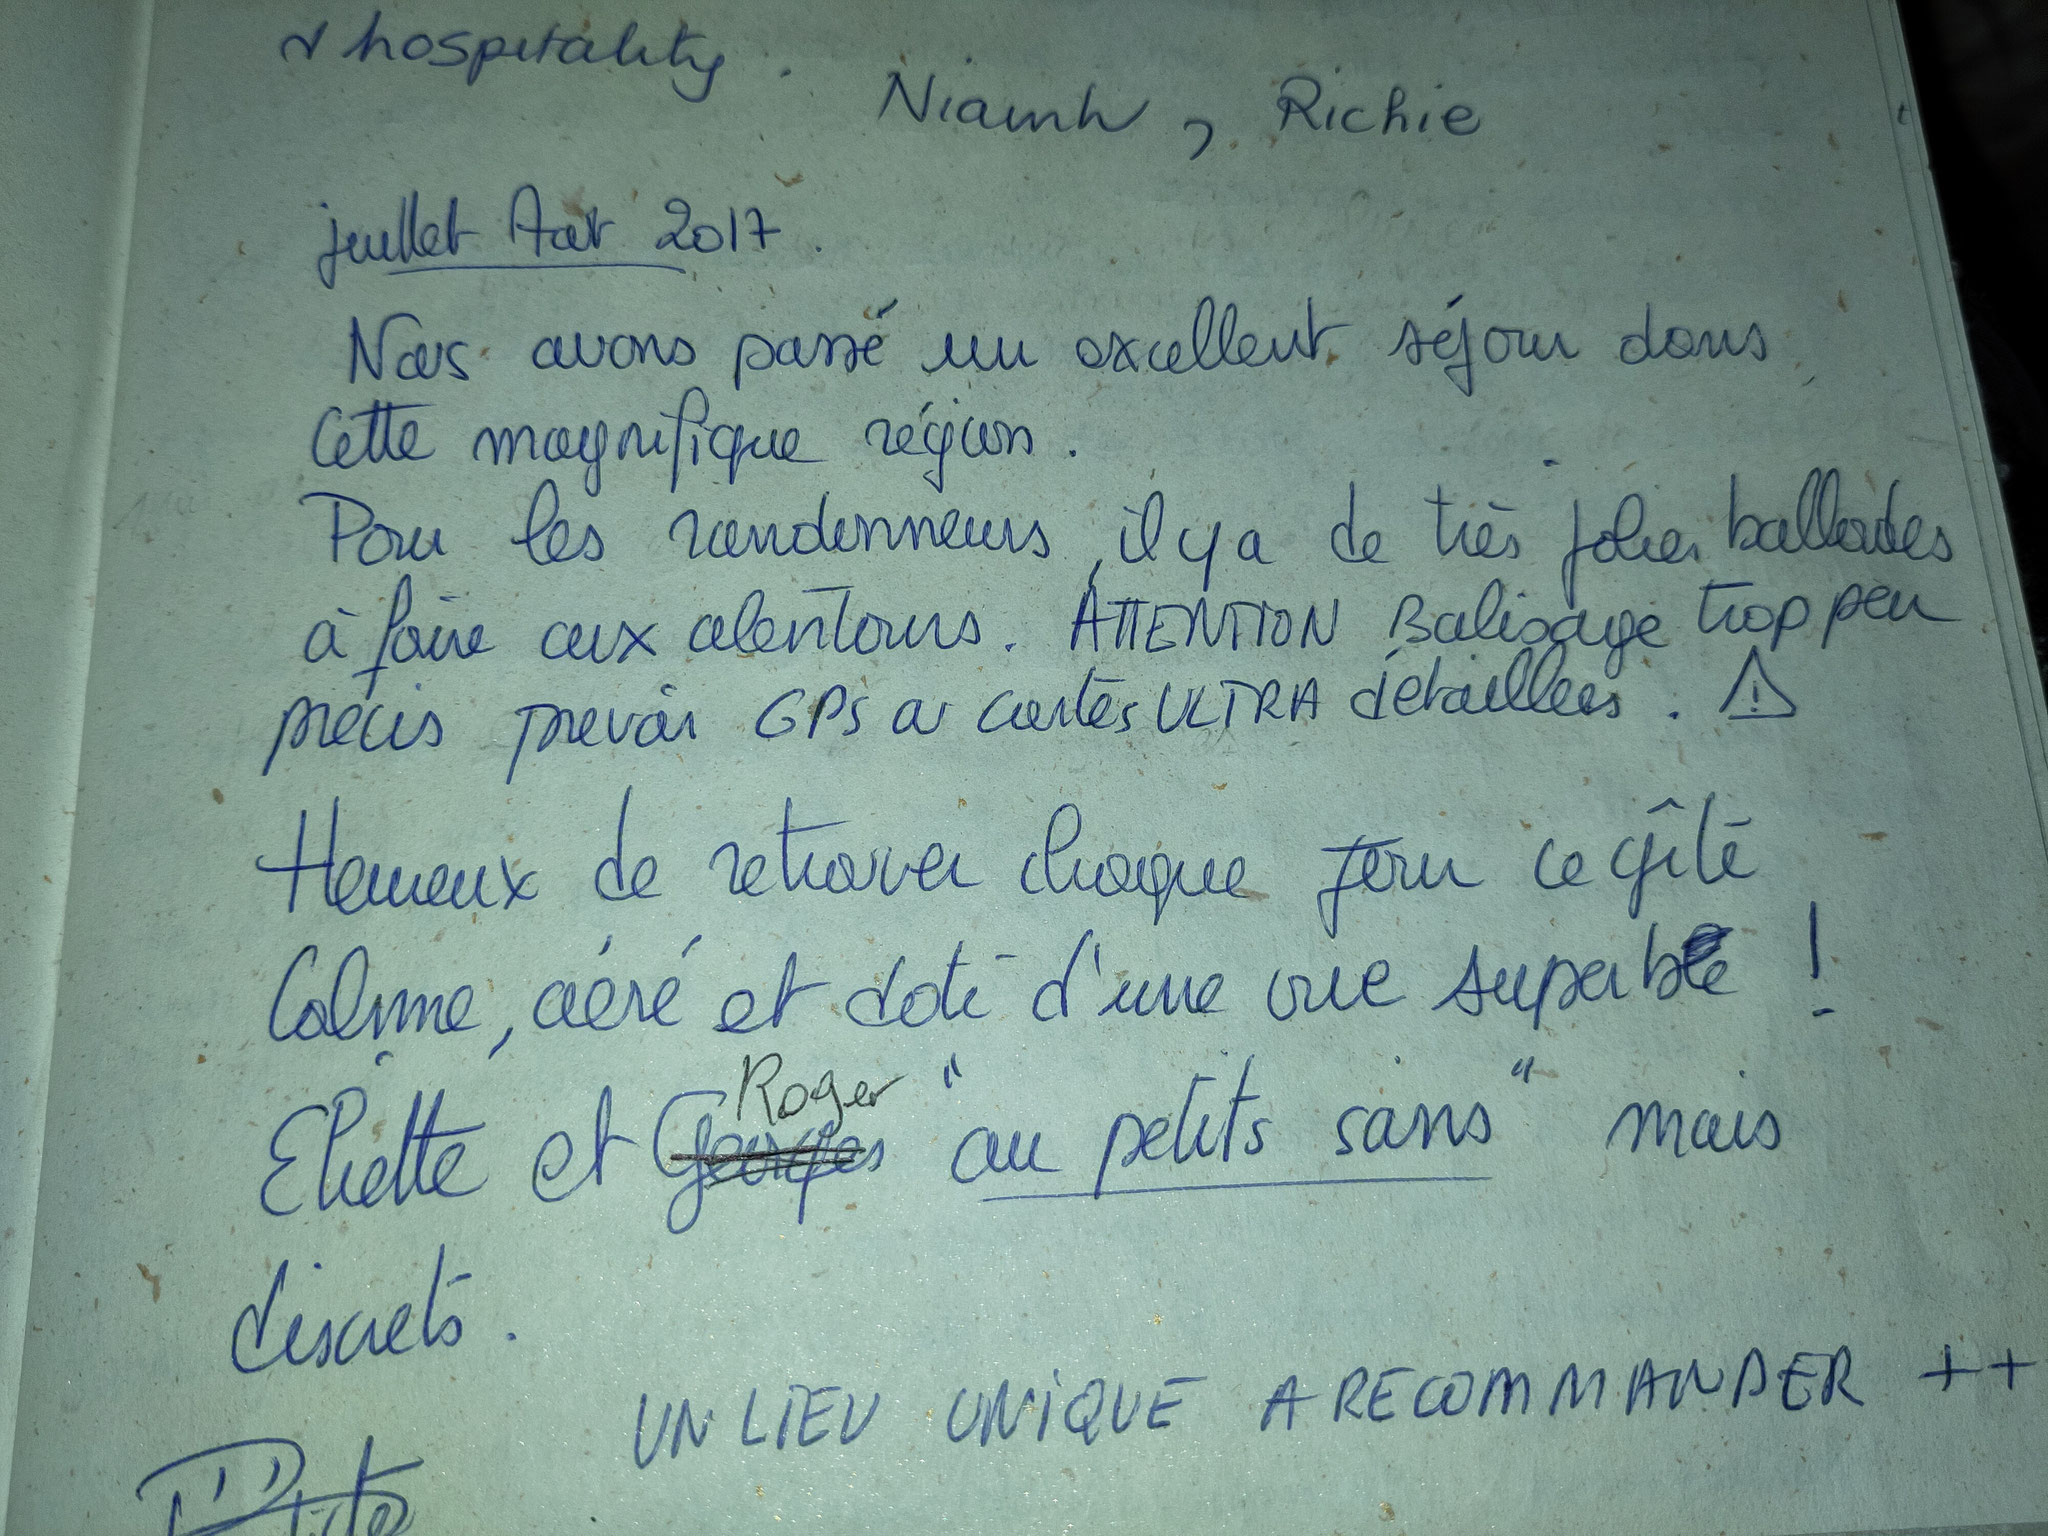 & hospitality.
Niamh, Richie
juillet Août 2017.
Nous avons passé un excellent séjour dans
Cette magnifique région.
Pour les randonneurs, il y a de très jolies ballades
à faire aux alentours. ATTENTION Balisage trop peu
précis prevoir GPS ou cartes ULTRA détaillées. ⚠
Heureux de retrouver chaque jour ce gîte
Calme, aéré et doté d'une vue superbe !
Roger
Eliette et Georges "au petits soins" mais
discrets.
UN LIEU UNIQUE A RECOMMANDER ++